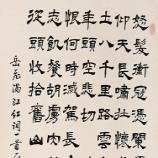 髮衝冠憑闌
仰天長嘯壯懷
土八千里路雲
年頭空悲切
恨何時滅駕長
志飢餐胡虜肉
從頭收拾舊山
岳飛滿江紅詞一首